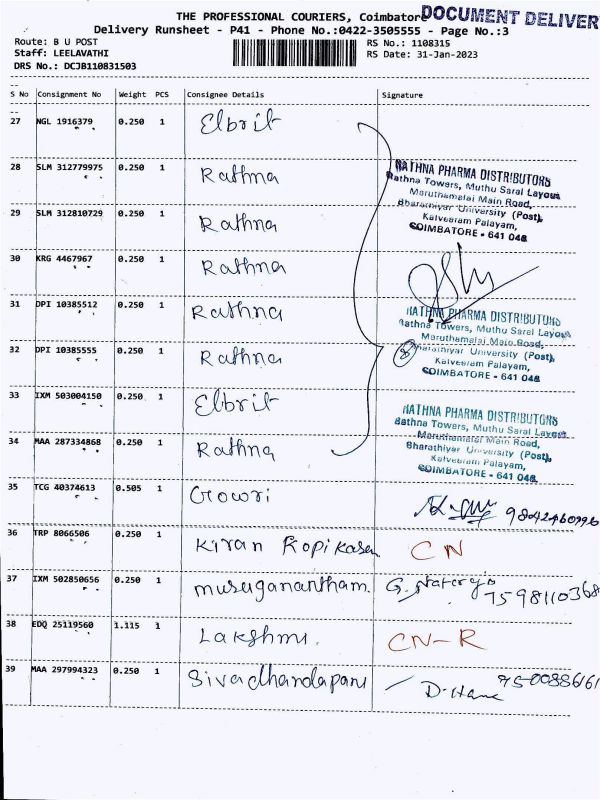 THE PROFESSIONAL COURIERS, Coimbator
DOCUMENT DELIVER
Delivery Runsheet - P41 - Phone No.:0422-3505555 - Page No.:3
Route: B U POST
RS No.: 1108315
Staff: LEELAVATHI
RS Date: 31-Jan-2023
DRS No.: DCJB110831503
S No Consignment No Weight PCS Consignee Details Signature
27 NGL 1916379 0.250 1 Elbrit
28 SLM 312779975 0.250 1 Rathna
29 SLM 312810729 0.250 1 Rathna
30 KRG 4467967 0.250 1 Rathna
31 DPI 10385512 0.250 1 Rathna
32 DPI 10385555 0.250 1 Rathna
33 IXM 503004150 0.250 1 Elbrit
34 MAA 287334868 0.250 1 Rathna
RATHNA PHARMA DISTRIBUTORS
Rathna Towers, Muthu Saral Layout
Maruthamalai Main Road,
Bharathiyar University (Post),
Kalveeram Palayam,
COIMBATORE - 641 046
RATHNA PHARMA DISTRIBUTORS
Rathna Towers, Muthu Saral Layout
Maruthamalai Main Road,
Bharathiyar University (Post),
Kalveeram Palayam,
COIMBATORE - 641 046
8
RATHNA PHARMA DISTRIBUTORS
Rathna Towers, Muthu Saral Layout
Maruthamalai Main Road,
Bharathiyar University (Post),
Kalveeram Palayam,
COIMBATORE - 641 046
35 TCG 40374613 0.505 1 Gowri
36 TRP 8066506 0.250 1 Kiran Kopikasen CN
37 IXM 502850656 0.250 1 musuganantham.
38 EDQ 25119560 1.115 1 Lakshmi. CN-R
39 MAA 297994323 0.250 1 Sivadhandapani